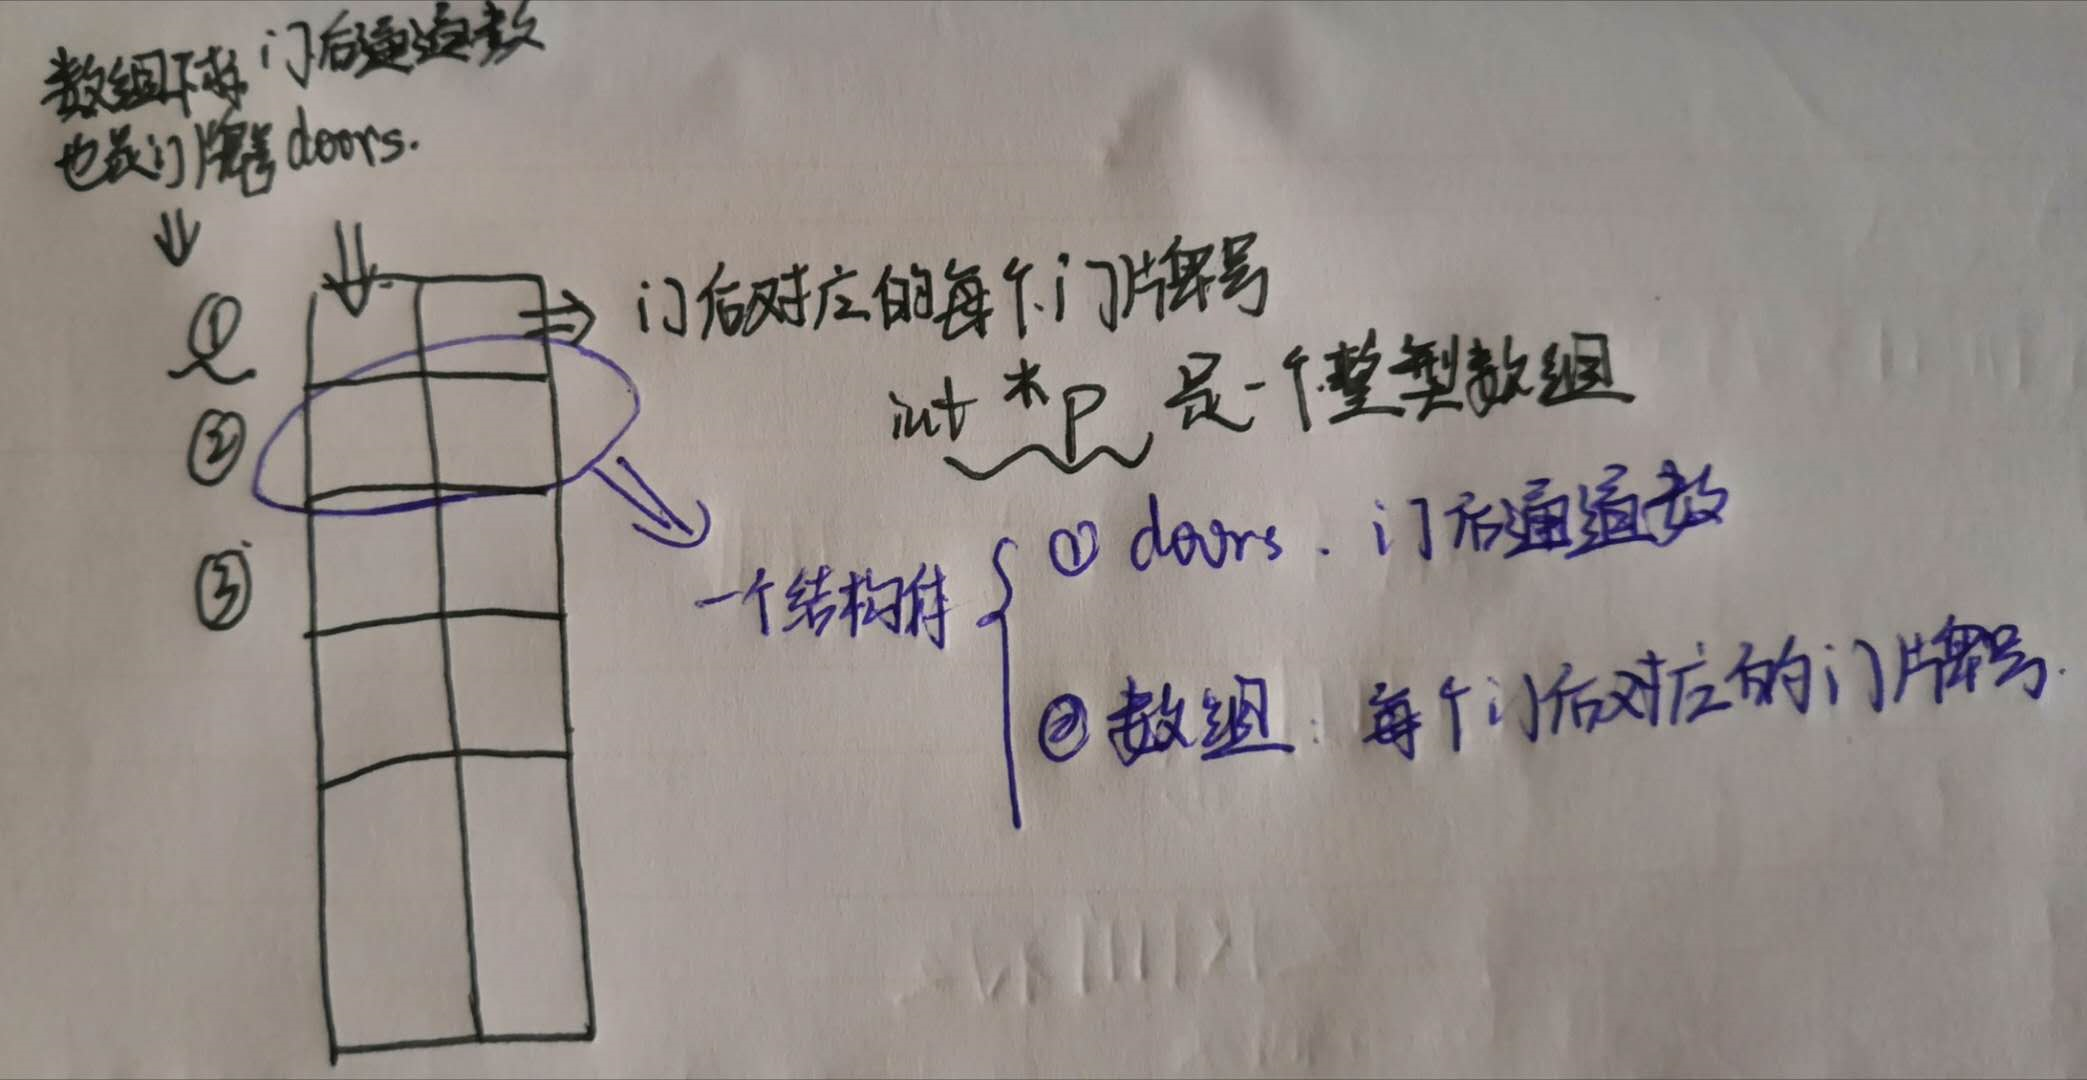 数组下标 门后通道数
也是门牌号 doors.
①
②
③
门后对应的每个门牌号
int *p 是一个整型数组
一个结构体
① doors. 门后通道数
② 数组: 每个门后对应的门牌号.